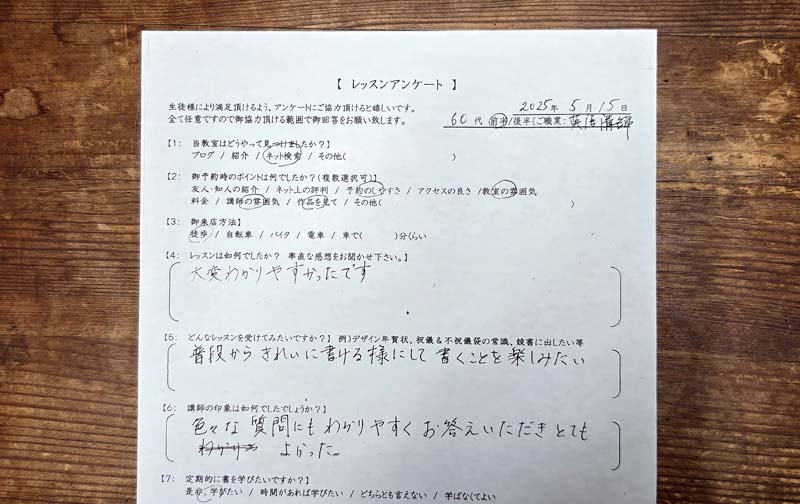 【 レッスンアンケート 】
生徒様により満足頂けるよう、アンケートにご協力頂けると嬉しいです。
2025年 5月 15日
全て任意ですので御協力頂ける範囲で御回答をお願い致します。
60代 前半/後半(ご職業: 英語講師
【1: 当教室はどうやって見つけましたか?】
ブログ / 紹介 / ネット検索 / その他( )
【2: 御予約時のポイントは何でしたか?(複数選択可)】
友人・知人の紹介 / ネット上の評判 / 予約のしやすさ / アクセスの良さ /教室の雰囲気
料金 / 講師の雰囲気 / 作品を見て / その他( )
【3: 御来店方法】
徒歩 / 自転車 / バイク / 電車 / 車で( )分くらい
【4: レッスンは如何でしたか? 率直な感想をお聞かせ下さい。】
大変わかりやすかったです
【5: どんなレッスンを受けてみたいですか?】 例)デザイン年賀状、祝儀&不祝儀袋の常識、競書に出したい等
普段からきれいに書ける様にして書くことを楽しみたい
【6: 講師の印象は如何でしたでしょうか?】
色々な質問にもわかりやすくお答えいただきとても
よかった。
【7: 定期的に書を学びたいですか?】
是非、学びたい / 時間があれば学びたい / どちらとも言えない / 学ばなくてよい